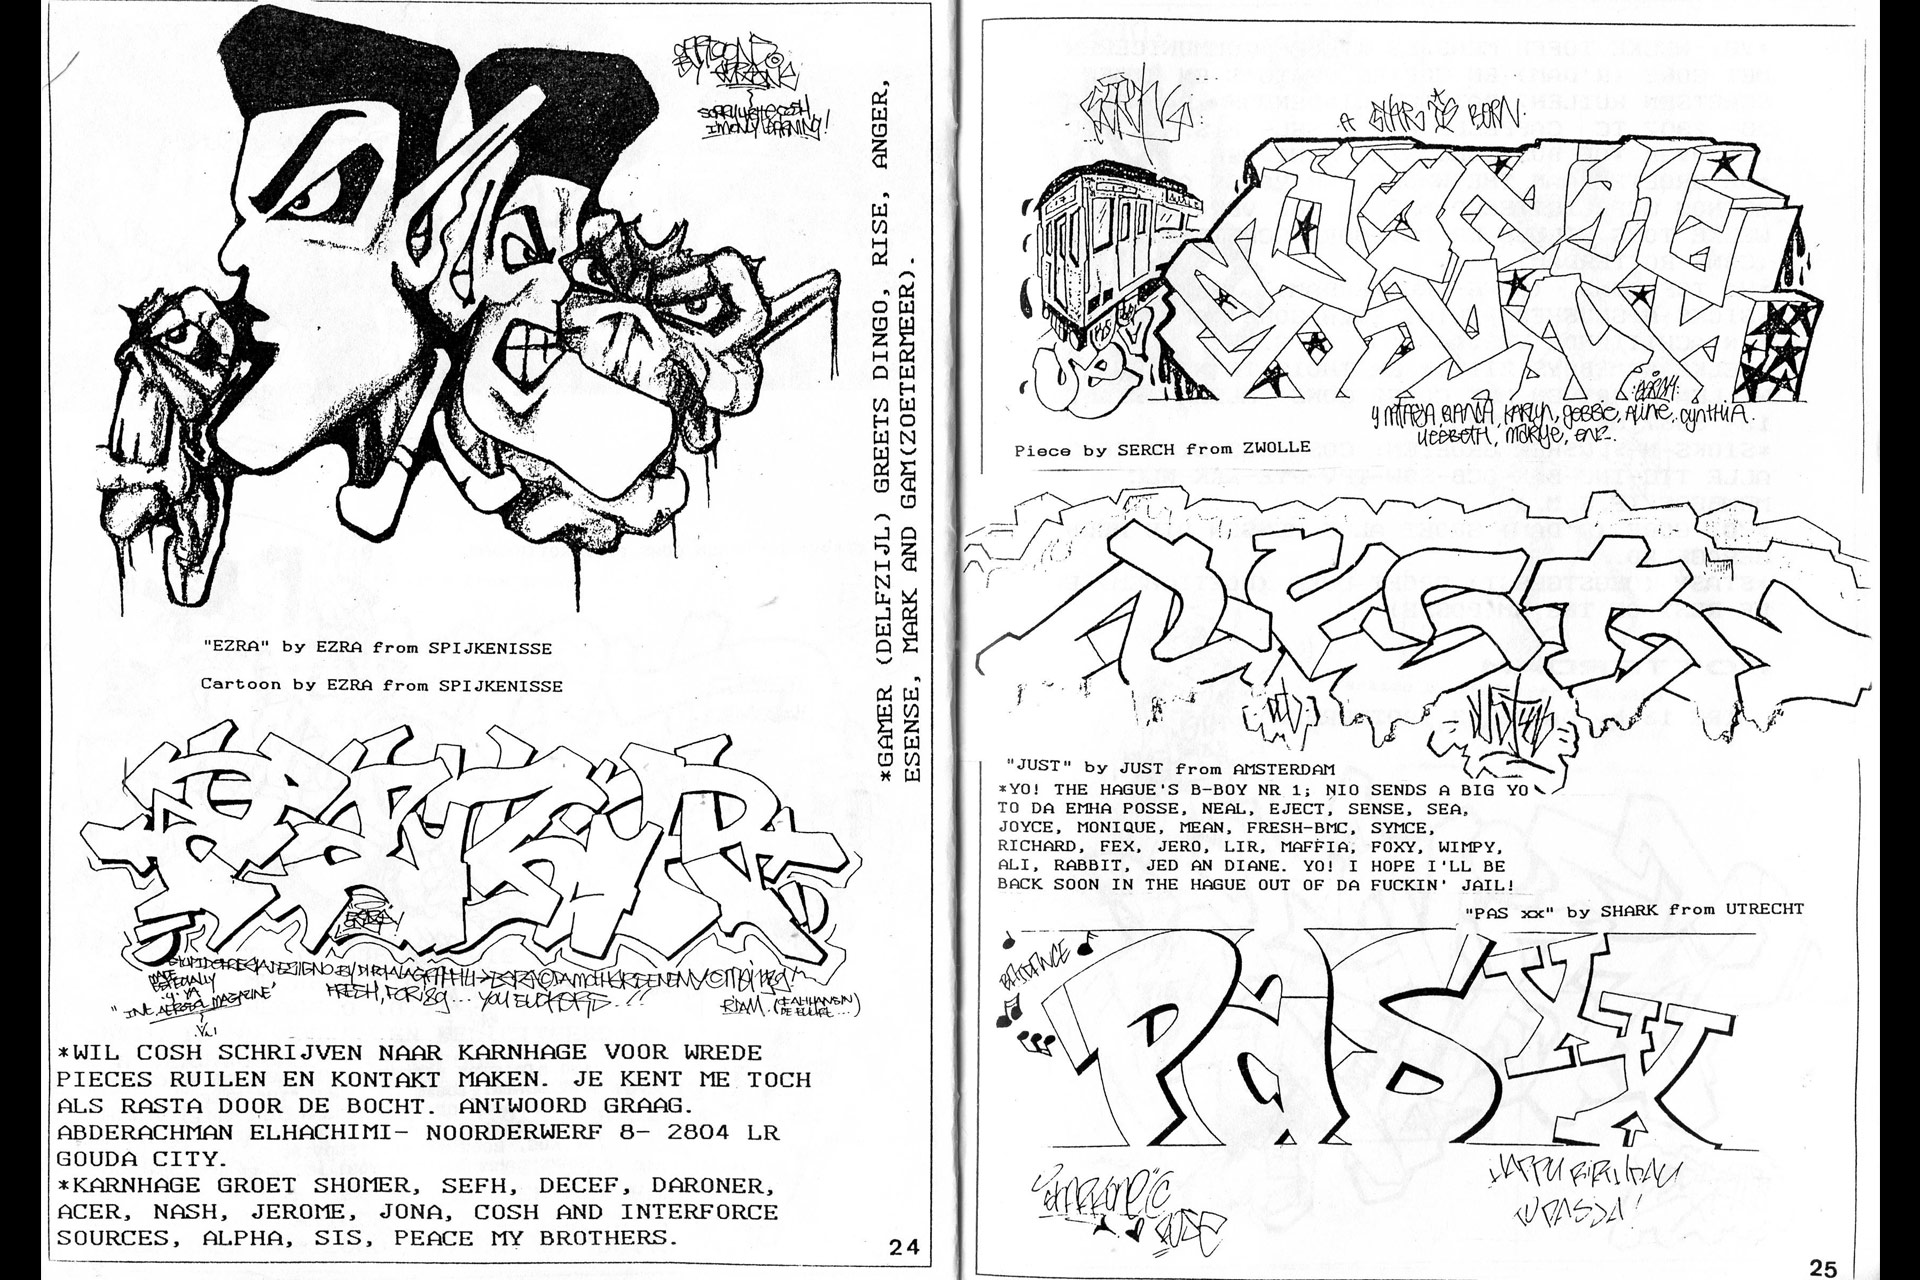 CARTOON
BY EZRAONE
SORRY WHTE COSH
I'M ONLY LEARNING!
*GAMER (DELFZIJL) GREETS DINGO, RISE, ANGER,
ESENSE, MARK AND GAM(ZOETERMEER).
"EZRA" by EZRA from SPIJKENISSE
Cartoon by EZRA from SPIJKENISSE
EZRA!
MADE
ESPECIALLY
4 YA
"INT. AEROSOL MAGAZINE"
FRESH, FOR '89... YOU SUCKERS...!!
*WIL COSH SCHRIJVEN NAAR KARNHAGE VOOR WREDE
PIECES RUILEN EN KONTAKT MAKEN. JE KENT ME TOCH
ALS RASTA DOOR DE BOCHT. ANTWOORD GRAAG.
ABDERACHMAN ELHACHIMI- NOORDERWERF 8- 2804 LR
GOUDA CITY.
*KARNHAGE GROET SHOMER, SEFH, DECEF, DARONER,
ACER, NASH, JEROME, JONA, COSH AND INTERFORCE
SOURCES, ALPHA, SIS, PEACE MY BROTHERS.
24
A STAR IS BORN.
4 MITABA, BIANCA, KARLYN, gobbie, Aline, cynthiA.
LIESBETH, MARYE, ENZ..
Piece by SERCH from ZWOLLE
JUST
"JUST" by JUST from AMSTERDAM
*YO! THE HAGUE'S B-BOY NR 1; NIO SENDS A BIG YO
TO DA EMHA POSSE, NEAL, EJECT, SENSE, SEA,
JOYCE, MONIQUE, MEAN, FRESH-BMC, SYMCE,
RICHARD, FEX, JERO, LIR, MAFFIA, FOXY, WIMPY,
ALI, RABBIT, JED AN DIANE. YO! I HOPE I'LL BE
BACK SOON IN THE HAGUE OUT OF DA FUCKIN' JAIL!
"PAS xx" by SHARK from UTRECHT
PASXX
HAPPY BIRTHDAY
TO PASSA!
25